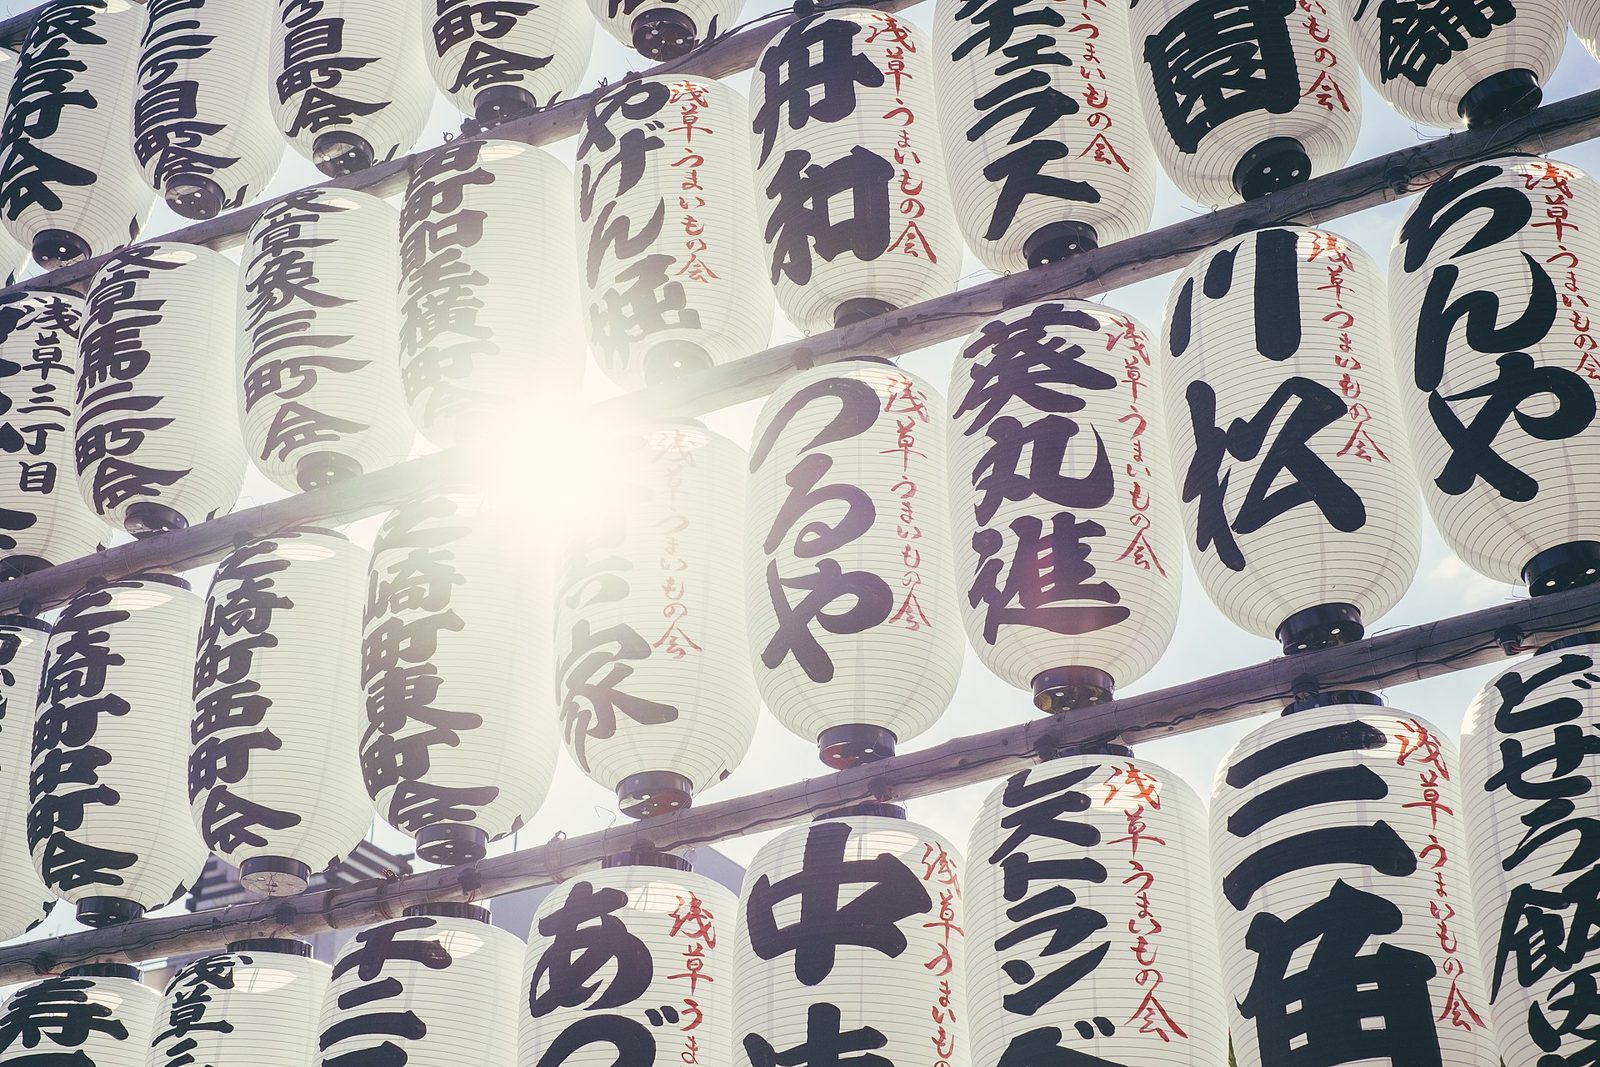 町会
二丁目町会
目町会
町会
やげん堀
浅草うまいもの会
舟和
浅草うまいもの会
テラス
うまいもの会
園
いもの会
浅草三丁目
浅草馬二町会
浅草象三町会
町昭玉横町
つるや
浅草うまいもの会
葵丸進
浅草うまいもの会
川松
浅草うまいもの会
ちんや
浅草うまいもの会
芝崎町中町会
芝崎町西町会
芝崎町東町会
家
浅草うまいもの会
春
浅草三
千二
あづ
浅草うま
中
浅草うまいも
ストラン
浅草うまいもの会
三角
浅草うまいもの会
どぜう飯田